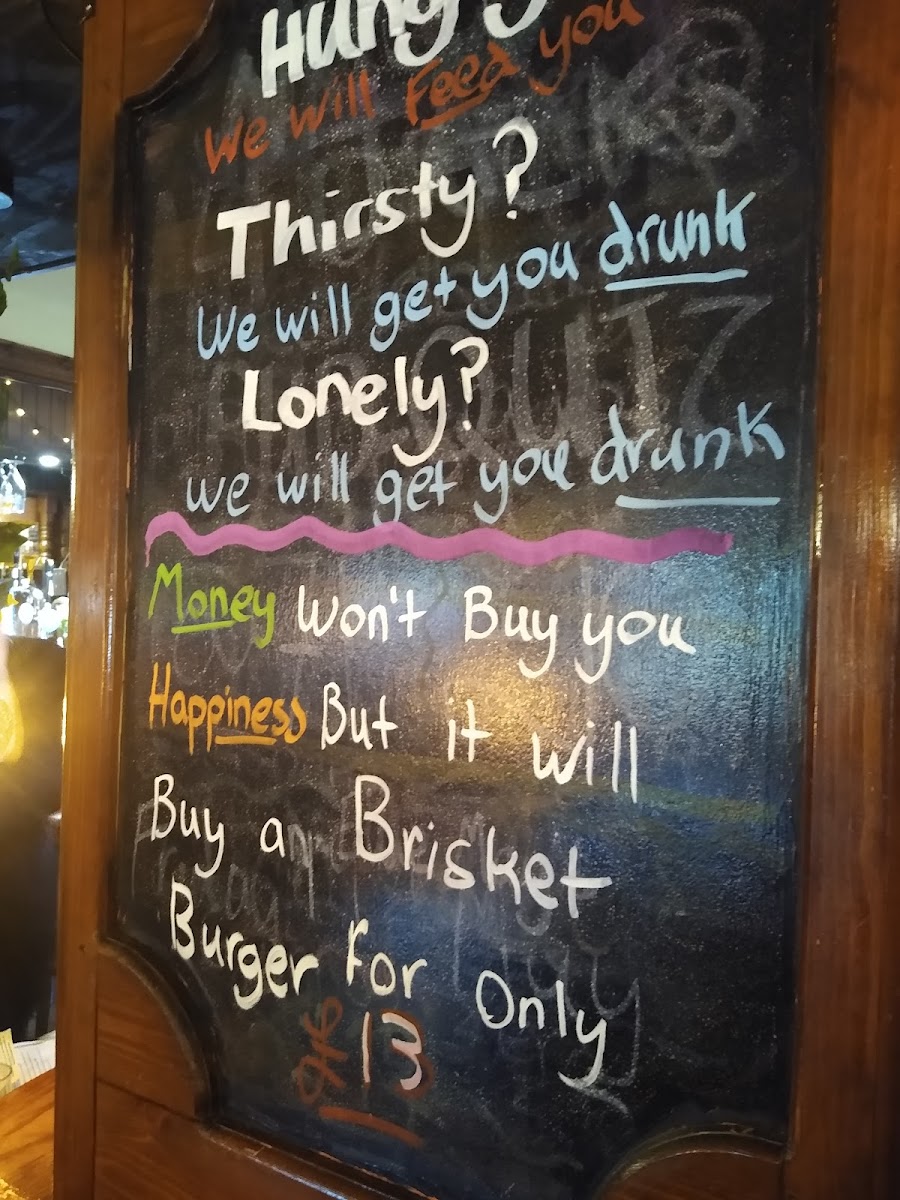 Hungry
We will Feed you
Thirsty?
We will get you drunk
Lonely?
we will get you drunk
Money won't Buy you
Happiness But it will
Buy a Brisket
Burger for Only
£13